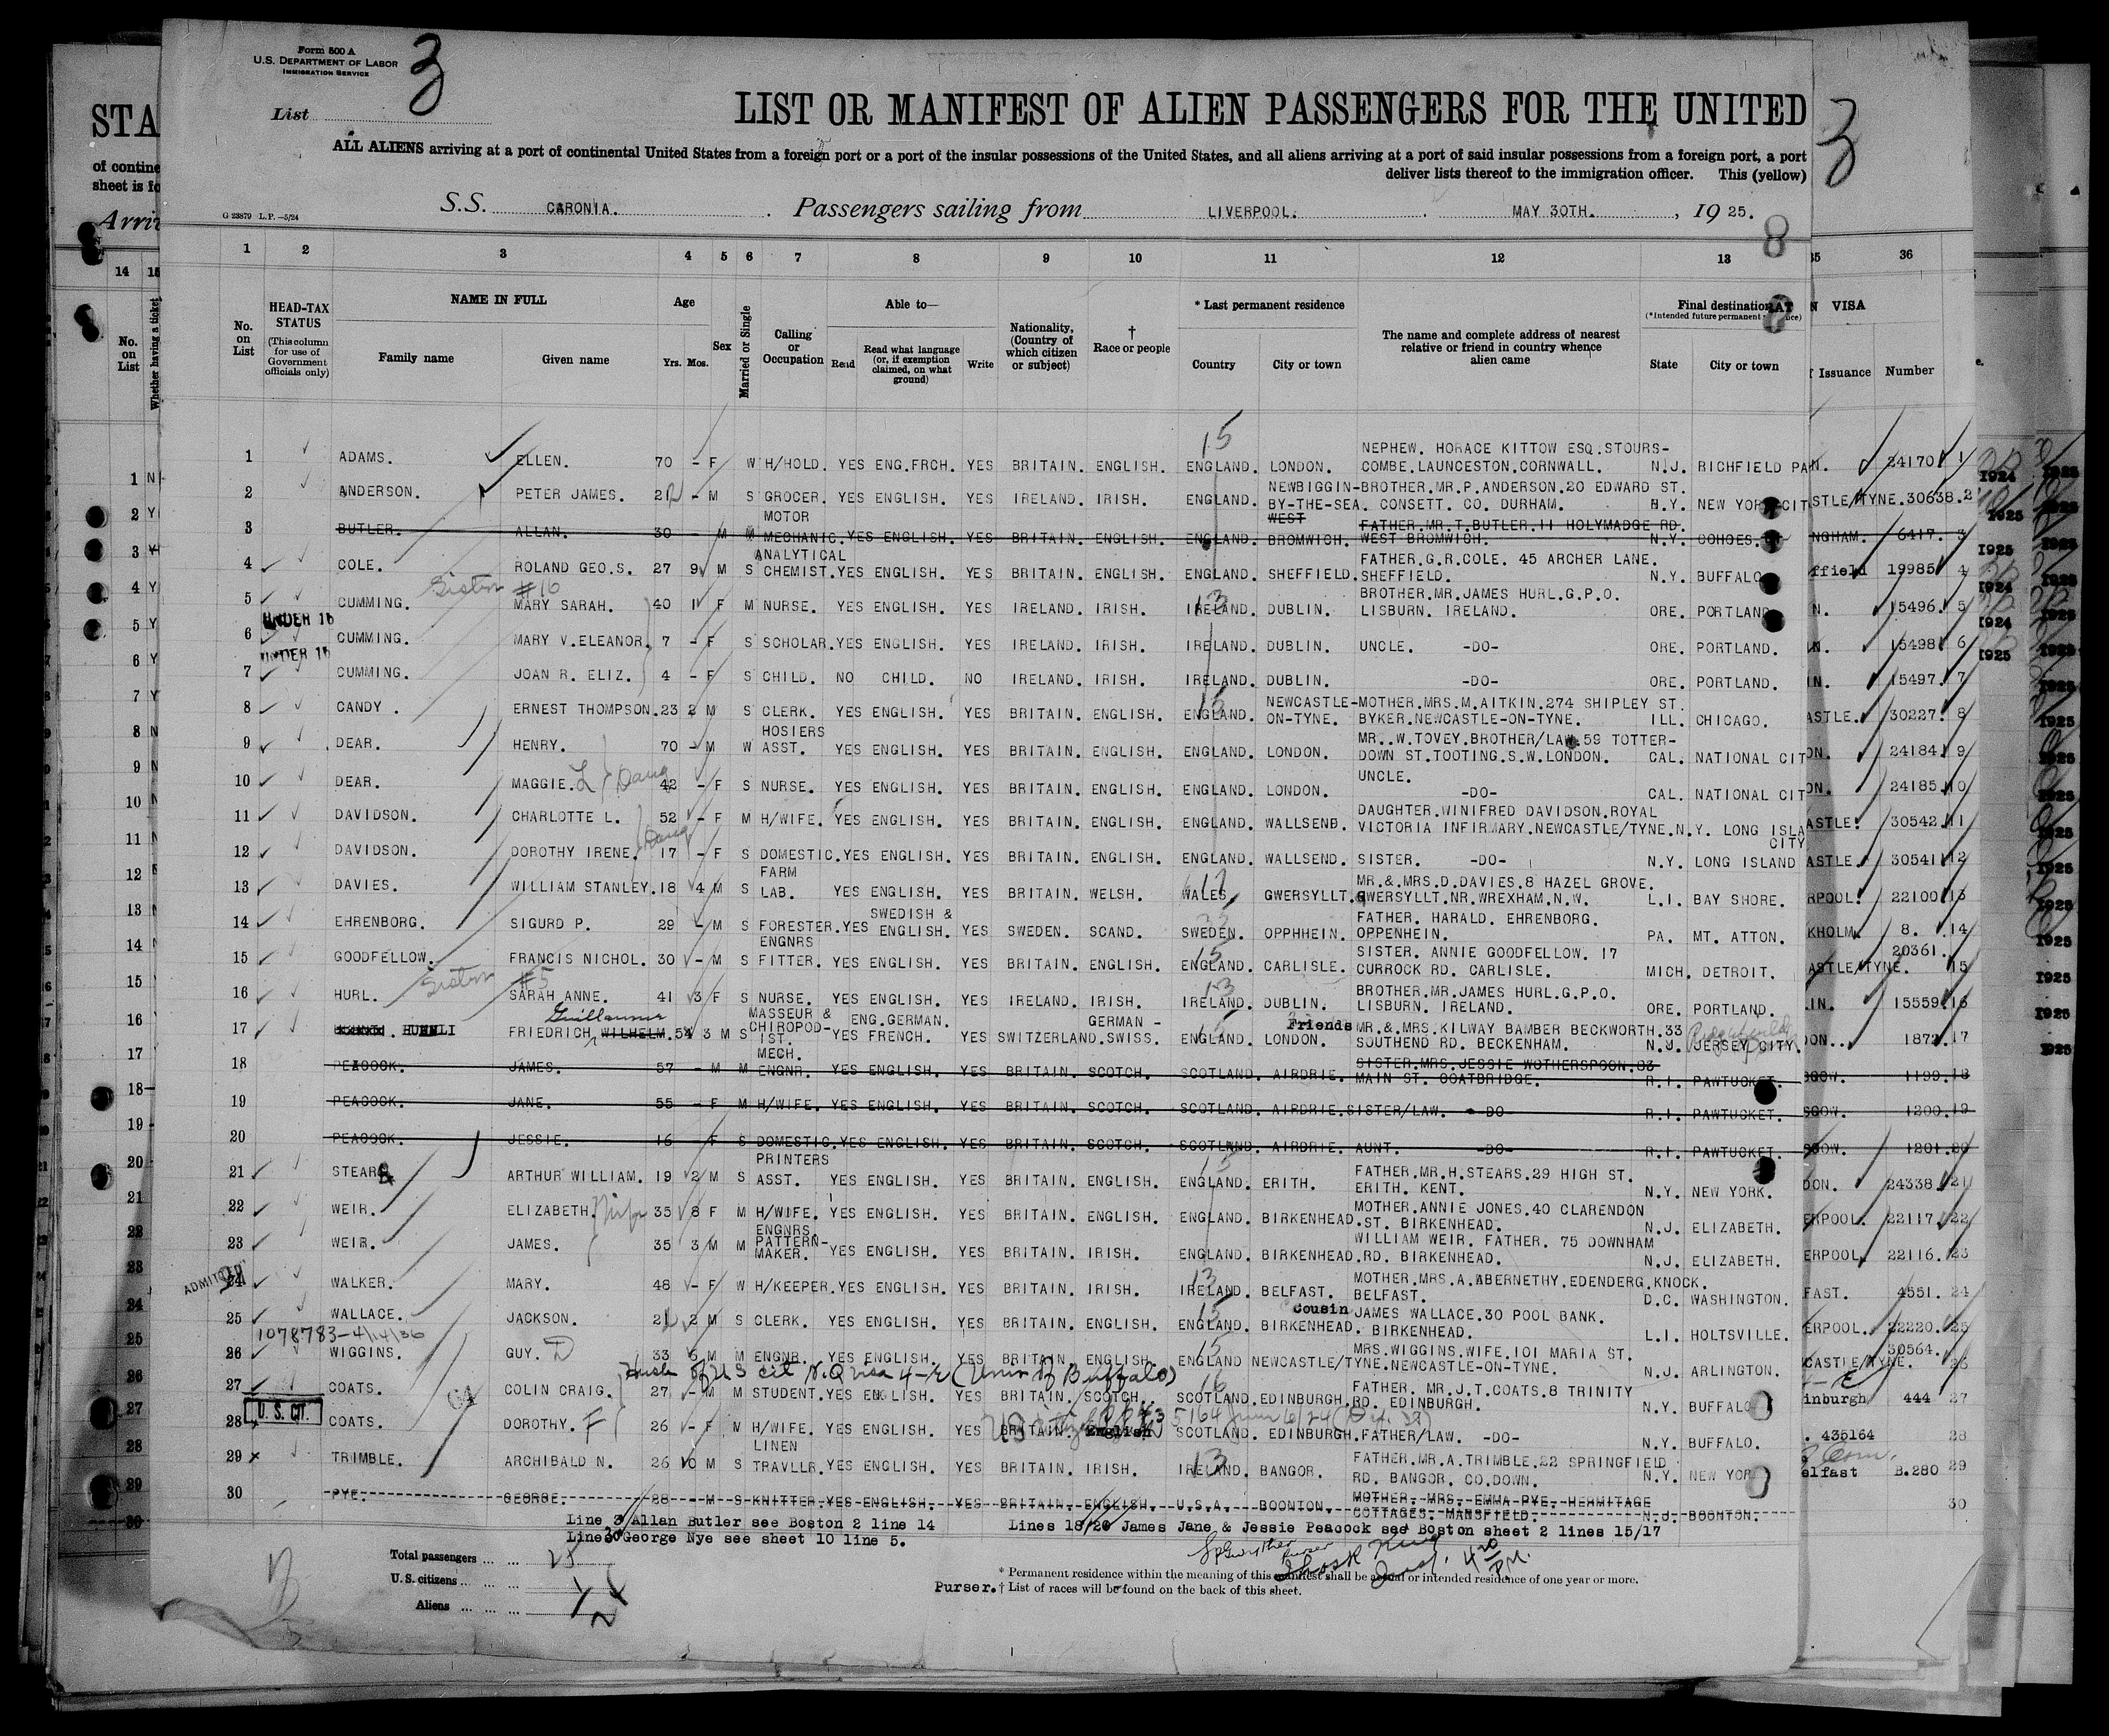 Form 500 A
U.S. DEPARTMENT OF LABOR
IMMIGRATION SERVICE
3
List
LIST OR MANIFEST OF ALIEN PASSENGERS FOR THE UNITED
ALL ALIENS arriving at a port of continental United States from a foreign port or a port of the insular possessions of the United States, and all aliens arriving at a port of said insular possessions from a foreign port, a port
deliver lists thereof to the immigration officer. This (yellow)
G 23879 L.P.—5/24
S.S. CARONIA. Passengers sailing from LIVERPOOL. MAY 30TH. , 1925.
1 2 3 4 5 6 7 8 9 10 11 12 13
No. on List
HEAD-TAX STATUS (This column for use of Government officials only)
NAME IN FULL
Family name Given name
Age Yrs. Mos.
Sex
Married or Single
Calling or Occupation
Able to—
Read Read what language (or, if exemption claimed, on what ground) Write
Nationality, (Country of which citizen or subject)
† Race or people
* Last permanent residence
Country City or town
The name and complete address of nearest relative or friend in country whence alien came
Final destination
State City or town
1 ADAMS. ELLEN. 70 - F W H/HOLD. YES ENG.FRCH. YES BRITAIN. ENGLISH. ENGLAND. LONDON. NEPHEW. HORACE KITTOW ESQ.STOURS-COMBE.LAUNCESTON.CORNWALL. N.J. RICHFIELD PA
2 ANDERSON. PETER JAMES. - M S GROCER. YES ENGLISH. YES IRELAND. IRISH. ENGLAND. NEWBIGGIN-BY-THE-SEA. BROTHER.MR.P.ANDERSON.20 EDWARD ST. CONSETT. CO. DURHAM. N.Y. NEW YORK CIT
3 BUTLER. ALLAN. 30 - M M MOTOR MECHANIC. YES ENGLISH. YES BRITAIN. ENGLISH. ENGLAND. WEST BROMWICH. FATHER.MR.T.BUTLER.11 HOLYMADGE RD. WEST BROMWICH. N.Y. COHOES.
4 COLE. ROLAND GEO.S. 27 9 M S ANALYTICAL CHEMIST. YES ENGLISH. YES BRITAIN. ENGLISH. ENGLAND. SHEFFIELD. FATHER.G.R.COLE. 45 ARCHER LANE. SHEFFIELD. N.Y. BUFFALO
Sister #16
5 CUMMING. MARY SARAH. 40 1 F M NURSE. YES ENGLISH. YES IRELAND. IRISH. IRELAND. DUBLIN. BROTHER.MR.JAMES HURL.G.P.O. LISBURN. IRELAND. ORE. PORTLAND
UNDER 16
6 CUMMING. MARY V.ELEANOR. 7 - F S SCHOLAR. YES ENGLISH. YES IRELAND. IRISH. IRELAND. DUBLIN. UNCLE. -DO- ORE. PORTLAND.
UNDER 16
7 CUMMING. JOAN R. ELIZ. 4 - F S CHILD. NO CHILD. NO IRELAND. IRISH. IRELAND. DUBLIN. -DO- ORE. PORTLAND.
8 CANDY . ERNEST THOMPSON. 23 2 M S CLERK. YES ENGLISH. YES BRITAIN. ENGLISH. ENGLAND. NEWCASTLE-ON-TYNE. MOTHER.MRS.M.AITKIN.274 SHIPLEY ST. BYKER.NEWCASTLE-ON-TYNE. ILL. CHICAGO.
9 DEAR. HENRY. 70 - M W HOSIERS ASST. YES ENGLISH. YES BRITAIN. ENGLISH. ENGLAND. LONDON. MR..W.TOVEY.BROTHER/LAW.59 TOTTER-DOWN ST.TOOTING.S.W.LONDON. CAL. NATIONAL CIT
10 DEAR. MAGGIE. L Daug 42 - F S NURSE. YES ENGLISH. YES BRITAIN. ENGLISH. ENGLAND. LONDON. UNCLE. -DO- CAL. NATIONAL CIT
11 DAVIDSON. CHARLOTTE L. 52 - F M H/WIFE. YES ENGLISH. YES BRITAIN. ENGLISH. ENGLAND. WALLSEND. DAUGHTER.WINIFRED DAVIDSON.ROYAL VICTORIA INFIRMARY.NEWCASTLE/TYNE. N.Y. LONG ISLA CITY
12 DAVIDSON. DOROTHY IRENE. Daug 17 - F S DOMESTIC. YES ENGLISH. YES BRITAIN. ENGLISH. ENGLAND. WALLSEND. SISTER. -DO- N.Y. LONG ISLAND
13 DAVIES. WILLIAM STANLEY. 18 4 M S FARM LAB. YES ENGLISH. YES BRITAIN. WELSH. WALES. GWERSYLLT. MR.& MRS.D.DAVIES.8 HAZEL GROVE. GWERSYLLT.NR.WREXHAM.N.W. L.I. BAY SHORE.
14 EHRENBORG. SIGURD P. 29 - M S FORESTER. YES SWEDISH & ENGLISH. YES SWEDEN. SCAND. SWEDEN. OPPHHEIN. FATHER. HARALD. EHRENBORG. OPPENHEIN. PA. MT. ATTON.
15 GOODFELLOW. FRANCIS NICHOL. 30 - M S ENGNRS FITTER. YES ENGLISH. YES BRITAIN. ENGLISH. ENGLAND. CARLISLE. SISTER. ANNIE GOODFELLOW. 17 CURROCK RD. CARLISLE. MICH. DETROIT.
Sister #5
16 HURL. SARAH ANNE. 41 3 F S NURSE. YES ENGLISH. YES IRELAND. IRISH. IRELAND. DUBLIN. BROTHER.MR.JAMES HURL.G.P.O. LISBURN. IRELAND. ORE. PORTLAND.
17 HUENLI FRIEDRICH. Guillaume WILHELM. 54 3 M S MASSEUR & CHIROPOD-IST. YES ENG.GERMAN. FRENCH. YES SWITZERLAND. GERMAN - SWISS. ENGLAND. LONDON. Friends MR.& MRS.KILWAY BAMBER BECKWORTH.33 SOUTHEND RD. BECKENHAM. N.J. JERSEY CITY.
18 PEACOCK. JAMES. 57 - M M MECH. ENGNR. YES ENGLISH. YES BRITAIN. SCOTCH. SCOTLAND. AIRDRIE. SISTER.MRS.JESSIE WOTHERSPOON.83 MAIN ST. COATBRIDGE. R.I. PAWTUCKET.
19 PEACOCK. JANE. 55 - F M H/WIFE. YES ENGLISH. YES BRITAIN. SCOTCH. SCOTLAND. AIRDRIE. SISTER/LAW. -DO- R.I. PAWTUCKET.
20 PEACOCK. JESSIE. 16 - F S DOMESTIC. YES ENGLISH. YES BRITAIN. SCOTCH. SCOTLAND. AIRDRIE. AUNT. -DO- R.I. PAWTUCKET.
21 STEARS ARTHUR WILLIAM. 19 2 M S PRINTERS ASST. YES ENGLISH. YES BRITAIN. ENGLISH. ENGLAND. ERITH. FATHER.MR.H.STEARS.29 HIGH ST. ERITH. KENT. N.Y. NEW YORK.
22 WEIR. ELIZABETH. Wife 35 8 F M H/WIFE. YES ENGLISH. YES BRITAIN. ENGLISH. ENGLAND. BIRKENHEAD. MOTHER.ANNIE JONES.40 CLARENDON ST. BIRKENHEAD. N.J. ELIZABETH.
23 WEIR. JAMES. 35 3 M M ENGNRS. PATTERN-MAKER. YES ENGLISH. YES BRITAIN. IRISH. ENGLAND. BIRKENHEAD. WILLIAM WEIR. FATHER. 75 DOWNHAM RD. BIRKENHEAD. N.J. ELIZABETH.
ADMITTED
24 WALKER. MARY. 48 - F W H/KEEPER. YES ENGLISH. YES BRITAIN. IRISH. IRELAND. BELFAST. MOTHER.MRS.A.ABERNETHY.EDENDERG.KNOCK. BELFAST. D.C. WASHINGTON.
25 WALLACE. JACKSON. 21 2 M S CLERK. YES ENGLISH. YES BRITAIN. ENGLISH. ENGLAND. BIRKENHEAD. Cousin JAMES WALLACE.30 POOL BANK. BIRKENHEAD. L.I. HOLTSVILLE.
1078783-4/14/36
26 WIGGINS. GUY. D 33 5 M M ENGNR. YES ENGLISH. YES BRITAIN ENGLISH. ENGLAND NEWCASTLE/TYNE. MRS.WIGGINS.WIFE.101 MARIA ST. NEWCASTLE-ON-TYNE. N.J. ARLINGTON.
Husb of US cit N.Q visa 4-E (Univ of Buffalo)
27 COATS. COLIN CRAIG. 27 - M M STUDENT. YES ENGLISH. YES BRITAIN. SCOTCH. SCOTLAND. EDINBURGH. FATHER. MR.J.T.COATS.8 TRINITY RD. EDINBURGH. N.Y. BUFFALO
U.S. CIT.
28 COATS. DOROTHY. F 26 - F M H/WIFE. YES ENGLISH. YES BRITAIN. English SCOTLAND. EDINBURGH. FATHER/LAW. -DO- N.Y. BUFFALO.
29 TRIMBLE. ARCHIBALD N. 26 10 M S LINEN TRAVLLR. YES ENGLISH. YES BRITAIN. IRISH. IRELAND. BANGOR. FATHER.MR.A.TRIMBLE.22 SPRINGFIELD RD. BANGOR. CO.DOWN. N.Y. NEW YORK
30 PYE. GEORGE. 28 - M S KNITTER. YES ENGLISH. YES BRITAIN. ENGLISH. U.S.A. BOONTON. MOTHER. MRS. EMMA PYE. HERMITAGE COTTAGES. MANSFIELD. N.J. BOONTON.
Line 3 Allan Butler see Boston 2 line 14 Lines 18/20 James Jane & Jessie Peacock see Boston sheet 2 lines 15/17
Line 30 George Nye see sheet 10 line 5.
Total passengers ... ... 25
U. S. citizens ... ... ... 1
Aliens ... ... ... 24
Purser.
* Permanent residence within the meaning of this manifest shall be actual or intended residence of one year or more.
† List of races will be found on the back of this sheet.
STA
of contine
sheet is fo
Arri
14 15
No. on List
Whether having a ticket
3
36
VISA
Issuance Number
N. 24170 1
STLE/TYNE. 30638. 2
NGHAM. 6417. 3
ffield 19985 4
N. 15496. 5
N. 15498 6
IN. 15497. 7
ASTLE. 30227. 8
ON. 24184. 9
ON. 24185. 10
ASTLE. 30542. 11
ASTLE. 30541 12
RPOOL. 22100. 13
KHOLM. 8. 14
ASTLE/TYNE. 20361. 15
LIN. 15559. 16
DON. 1872. 17
SGOW. 1199. 18
SGOW. 1200. 19
SGOW. 1201. 20
DON. 24338. 21
ERPOOL. 22117. 22
ERPOOL. 22116. 23
FAST. 4551. 24
ERPOOL. 22220. 25
CASTLE/TYNE. 30564. 26
inburgh 444 27
. 435164 28
elfast B.280 29
30